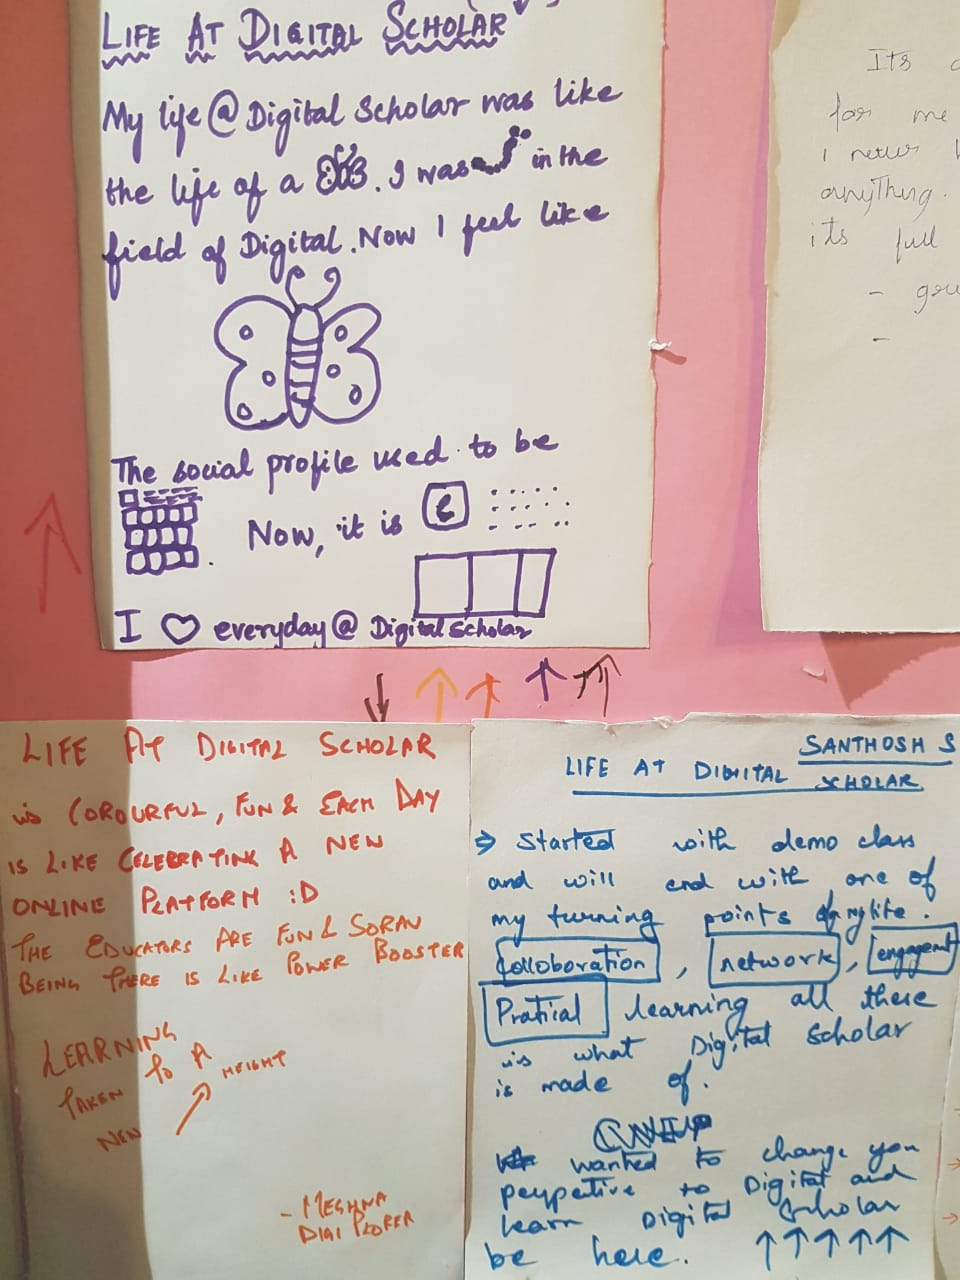 LIFE AT DIGITAL SCHOLAR
My life @ Digital Scholar was like
the life of a . I was in the
field of Digital. Now I feel like
The social profile used to be
. Now, it is
I ♡ everyday @ Digital Scholar
Its
for me
i never
anything.
its full
-
-
LIFE AT DIGITAL SCHOLAR
is COROURFUL, FUN & EACH DAY
IS LIKE CELEBRATING A NEW
ONLINE PLATFORM :D
THE EDUCATORS ARE FUN & SORAV
BEING THERE IS LIKE POWER BOOSTER
LEARNING
TAKEN TO A
NEW HEIGHT
- MEGHNA
DIGI PLORER
SANTHOSH S
LIFE AT DIGITAL SCHOLAR
⇒ Started with demo class
and will end with one of
my turning points of my life.
Colloboration , network , engagemt
Pratical learning all there
is what Digital Scholar
is made of.
wanted to change you
perspective to Digital and
learn Digital Scholar
be here. ↑↑↑↑↑